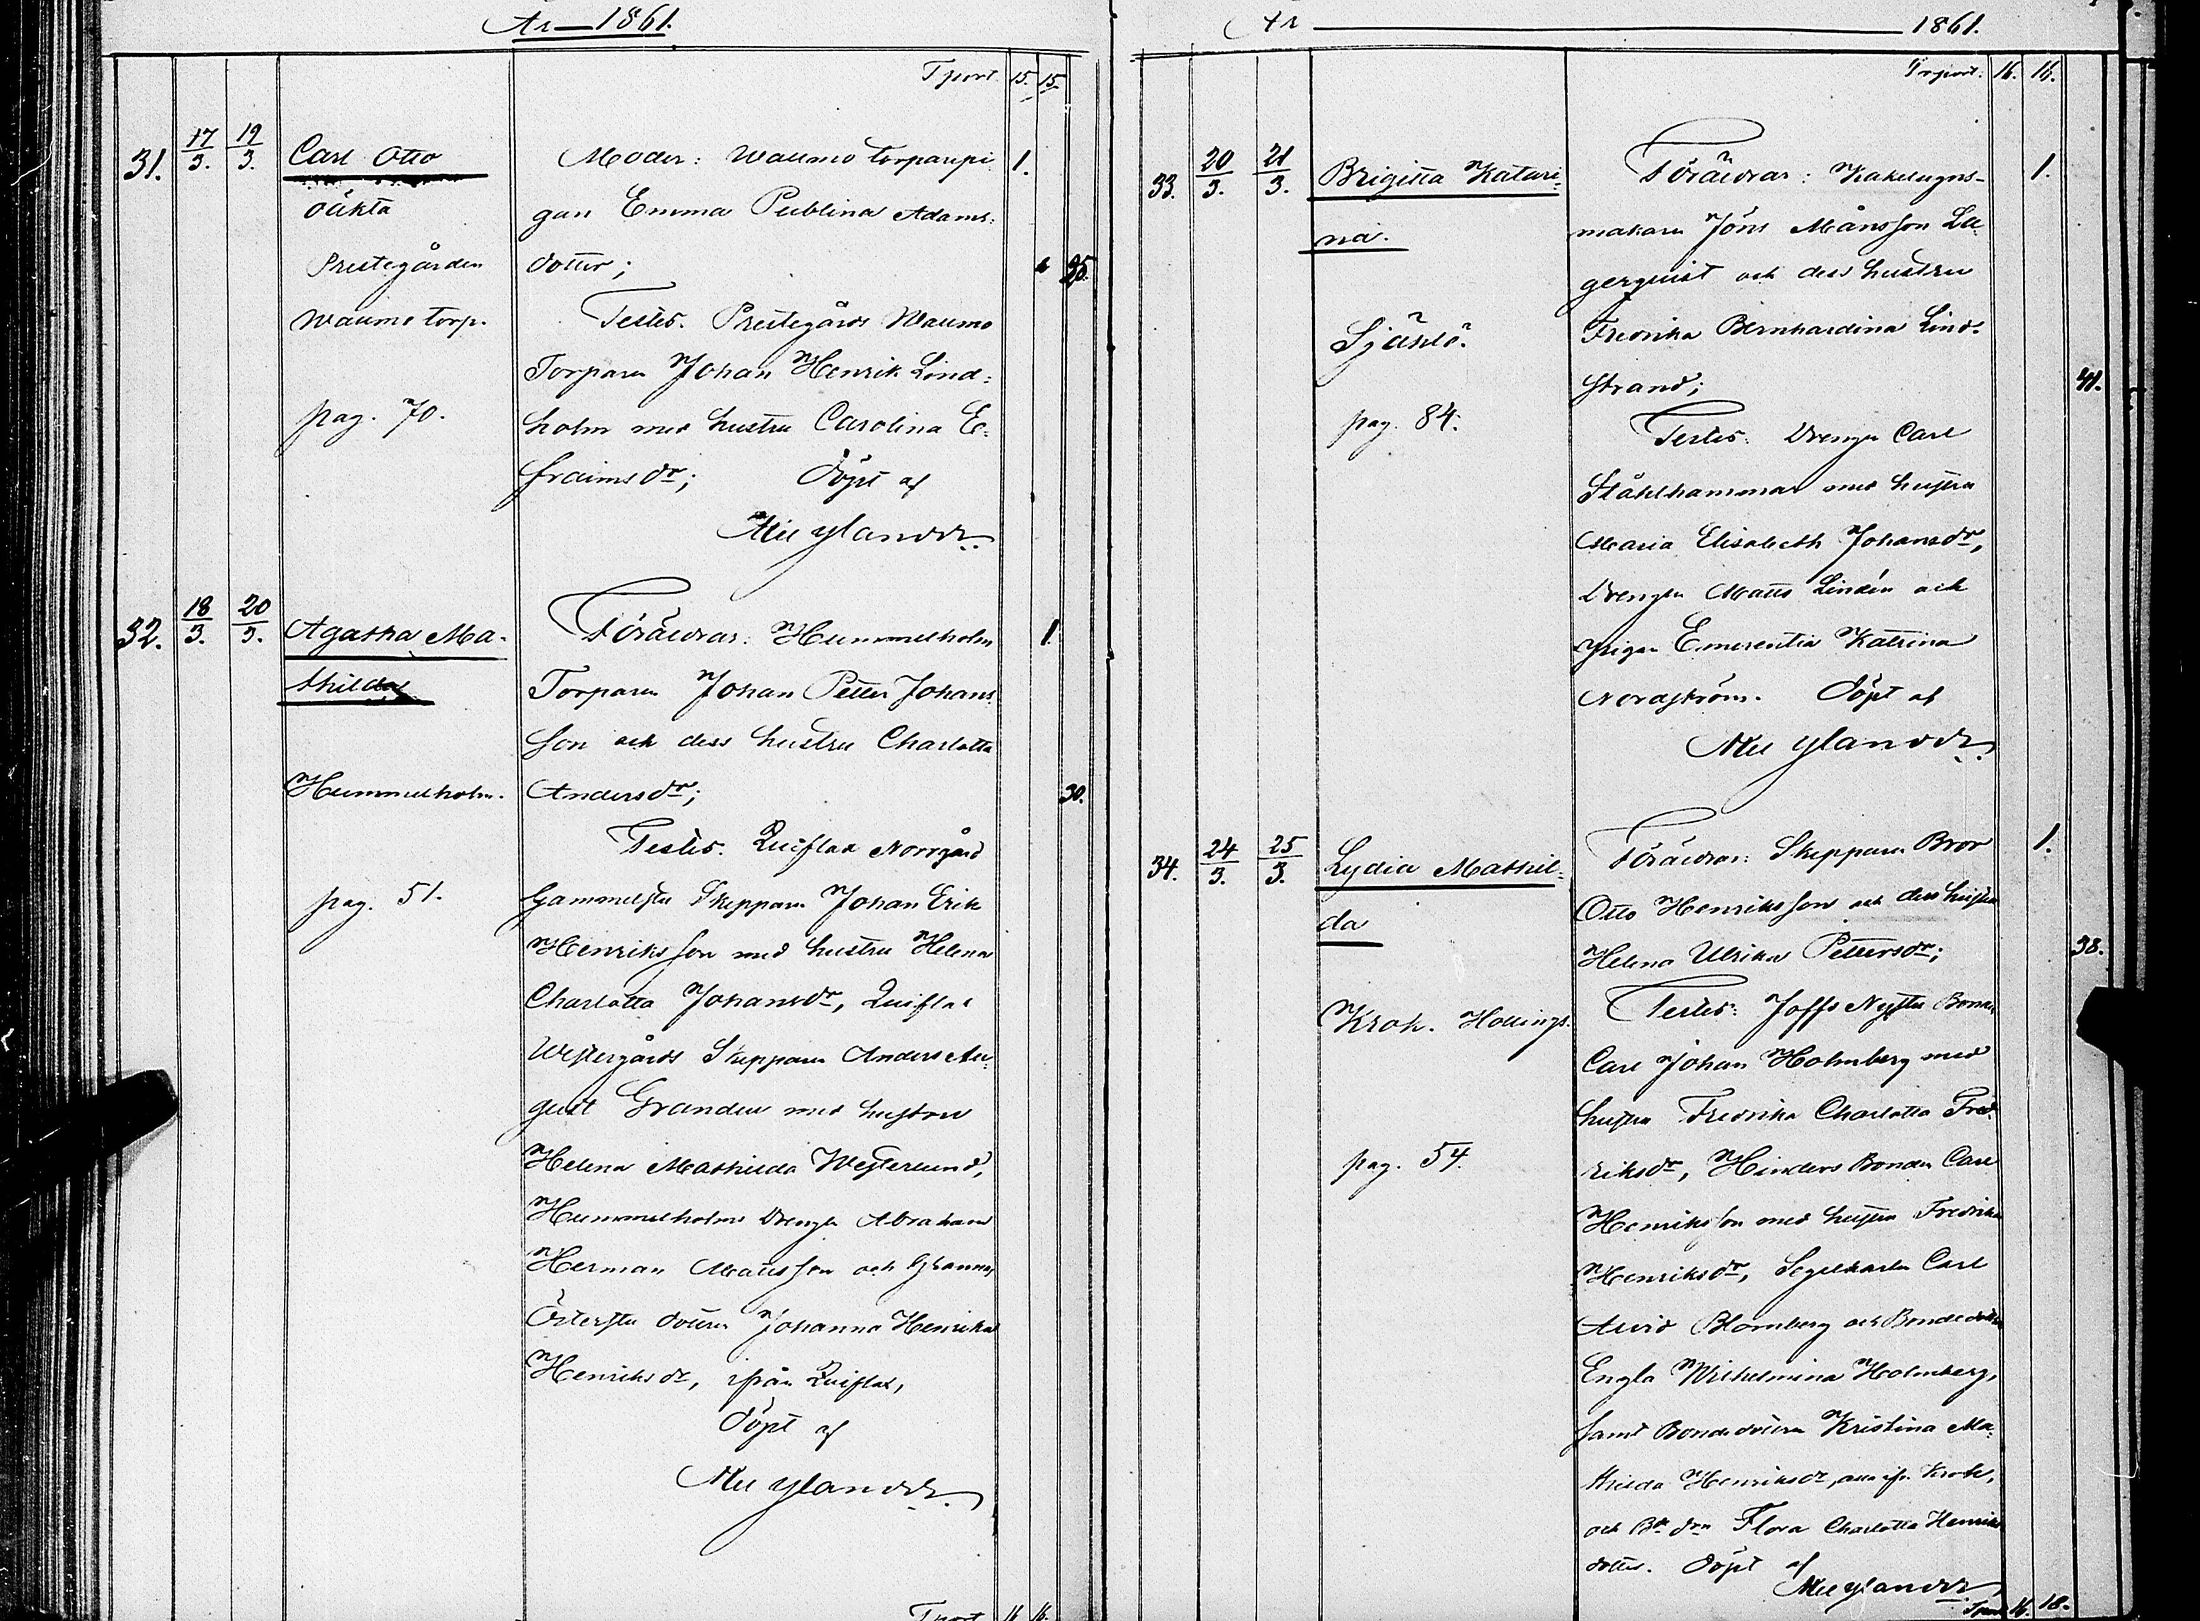 År 1861.
Tport. 15. 15.
31. 17/3. 19/3. Carl Otto
oäkta
Prestegården
Waumo torp.
pag. 70.
Moder: Waumo torparepi-
gan Emma Publina Adams-
dotter;
1.
25.
Testes. Prestegårds Waumo
Torparen Johan Henrik Lind-
holm med hustru Carolina E-
fraimsdr; Döpt af
Mue ylander
32. 18/3. 20/3. Agatha Ma-
thilda
Hummelholm.
pag. 51.
Föräldrar: Hummelholm
Torparen Johan Petter Johans
son och dess hustru Charlotta
Andersdr;
1.
30.
Testes. Quiflax Norrgård
Gammelstu Skepparen Johan Erik
Henriksson med hustru Helena
Charlotta Johansdr, Quiflax
Westergårds Skepparen Anders Au-
gust Grandell med hustru
Helena Mathilda Westerlund,
Hummelholms Drengen Abraham
Herman Mattsson och
Österstu dottren Johanna Henrika
Henriksdr, ifrån Quiflax,
Döpt af
Mue ylander
Tport. 16. 16.
År 1861.
Trsport. 16. 16.
33. 20/3. 21/3. Brigitta Katari-
na.
Själslö.
pag. 84.
Föräldrar: Kakelugns-
makaren Jöns Månsson La-
gerquist och dess hustru
Fredrika Bernhardina Lind-
strand;
1.
41.
Testes: Drengen Carl
Ståhlhammar med hustru
Maria Elisabeth Johansdr,
Drengen Matts Lindén och
pigan Emerentia Katrina
Nordström. Döpt af
Mue ylander
34. 24/3. 25/3. Lydia Mathil-
da
Krok. Hollings.
pag. 54.
Föräldrar: Skepparen Bror
Otto Henriksson och dess hustru
Helena Ulrika Pettersdr;
1.
38.
Testes: Joffs Nystu Bonden
Carl Johan Holmberg med
hustru Fredrika Charlotta Fred-
riksdr, Hinders Bonden Carl
Henriksson med hustru Fredrika
Henriksdr, Segelkarlen Carl
Arvid Blomberg och Bondedottren
Engla Wilhelmina Holmberg,
samt Bondedottren Kristina Ma-
thilda Henriksdr, alla ifr. Krok,
och Bde drn Flora Charlotta Henriks
dotter. Döpt af
Mue ylander
Tport. 16. 18.